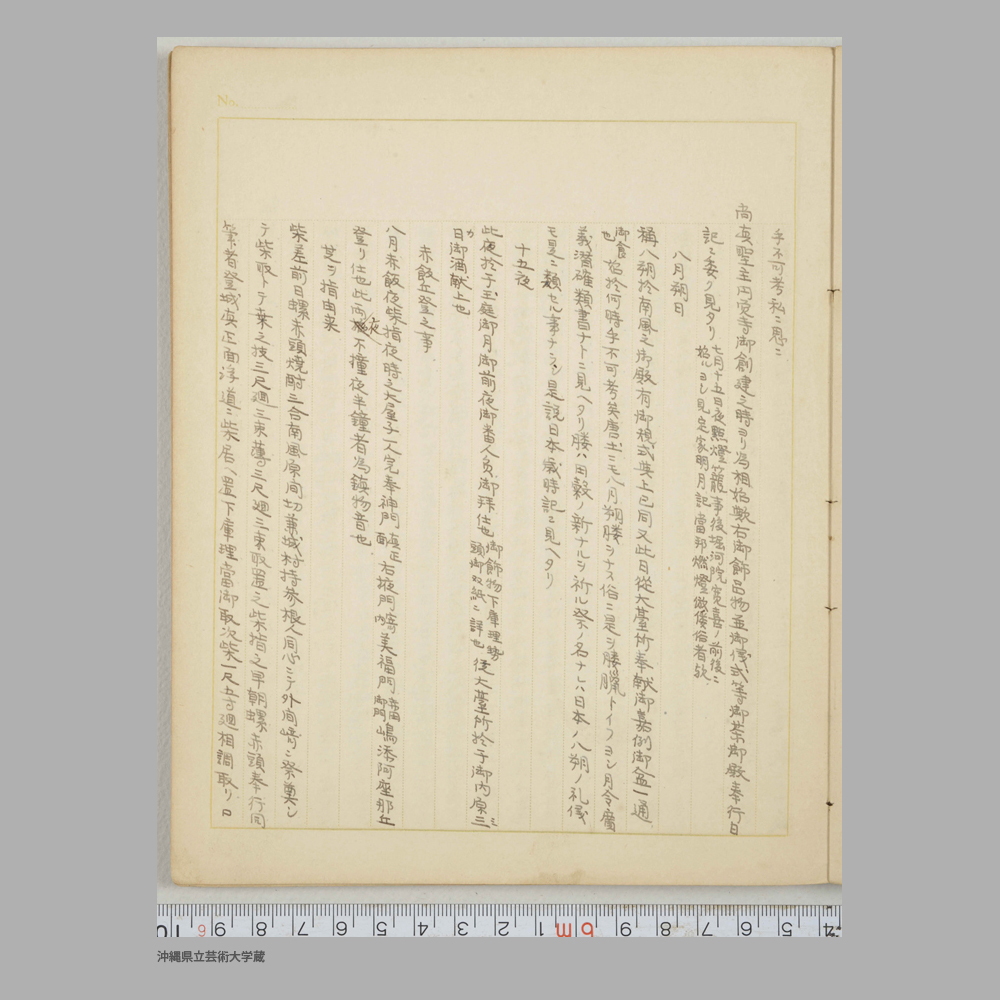 乎不可考私ニ思ニ
尚真聖主円覚寺御創建之時ヨリ為相始歟右御飾品物並御儀式等御茶御殿奉行日
記ニ委ク見タリ 七月十五日夜點燈籠事後堀河院寛喜ノ前後ニ
始ルヨシ見定家明月記當邦燃燈倣倭俗者欤
八月朔日
稱八朔於南風之御殿有御規式其上已同又此日従大臺所奉献御嘉例御盆一通
御食也 始於何時乎不可考矣唐土ニモ八月朔膢ヲナス俗ニ是ヲ膢臘トイフヨシ月令廣
義潜確類書ナトニ見ヘタリ膢ハ田穀ノ新ナルヲ祈ル祭ノ名ナレハ日本ノ八朔ノ礼儀
モ是ニ類セル事ナラン是説日本歳時記ニ見ヘタリ
十五夜
此夜於于玉庭御月御前夜御番人負御拜仕也 御飾物下庫理勢
頭御双紙ニ詳也 従大臺所於于御内原三ミ
カ日御酒献上也
赤飯丘登之事
八月赤飯夜柴指夜時之大屋子一人宛奉神門 真正面 右掖門 寄内 美福門 赤田御門 嶋添阿座那丘
登リ仕也此両夜不撞夜半鐘者為鎮物音也
芝ヲ指由来
柴差前日螺赤頭焼酎三合南風原間切兼城村持参根人同心ニテ外間﨑ニ祭奠シ
テ柴取トテ葉之技三尺廻三束薄三尺廻三束取置之柴指之早朝螺赤頭奉行同
筆者登城真正面浮道ニ柴居ヘ置下庫理當御取次柴一尺五寸廻相調取リ口
No.
沖縄県立芸術大学蔵